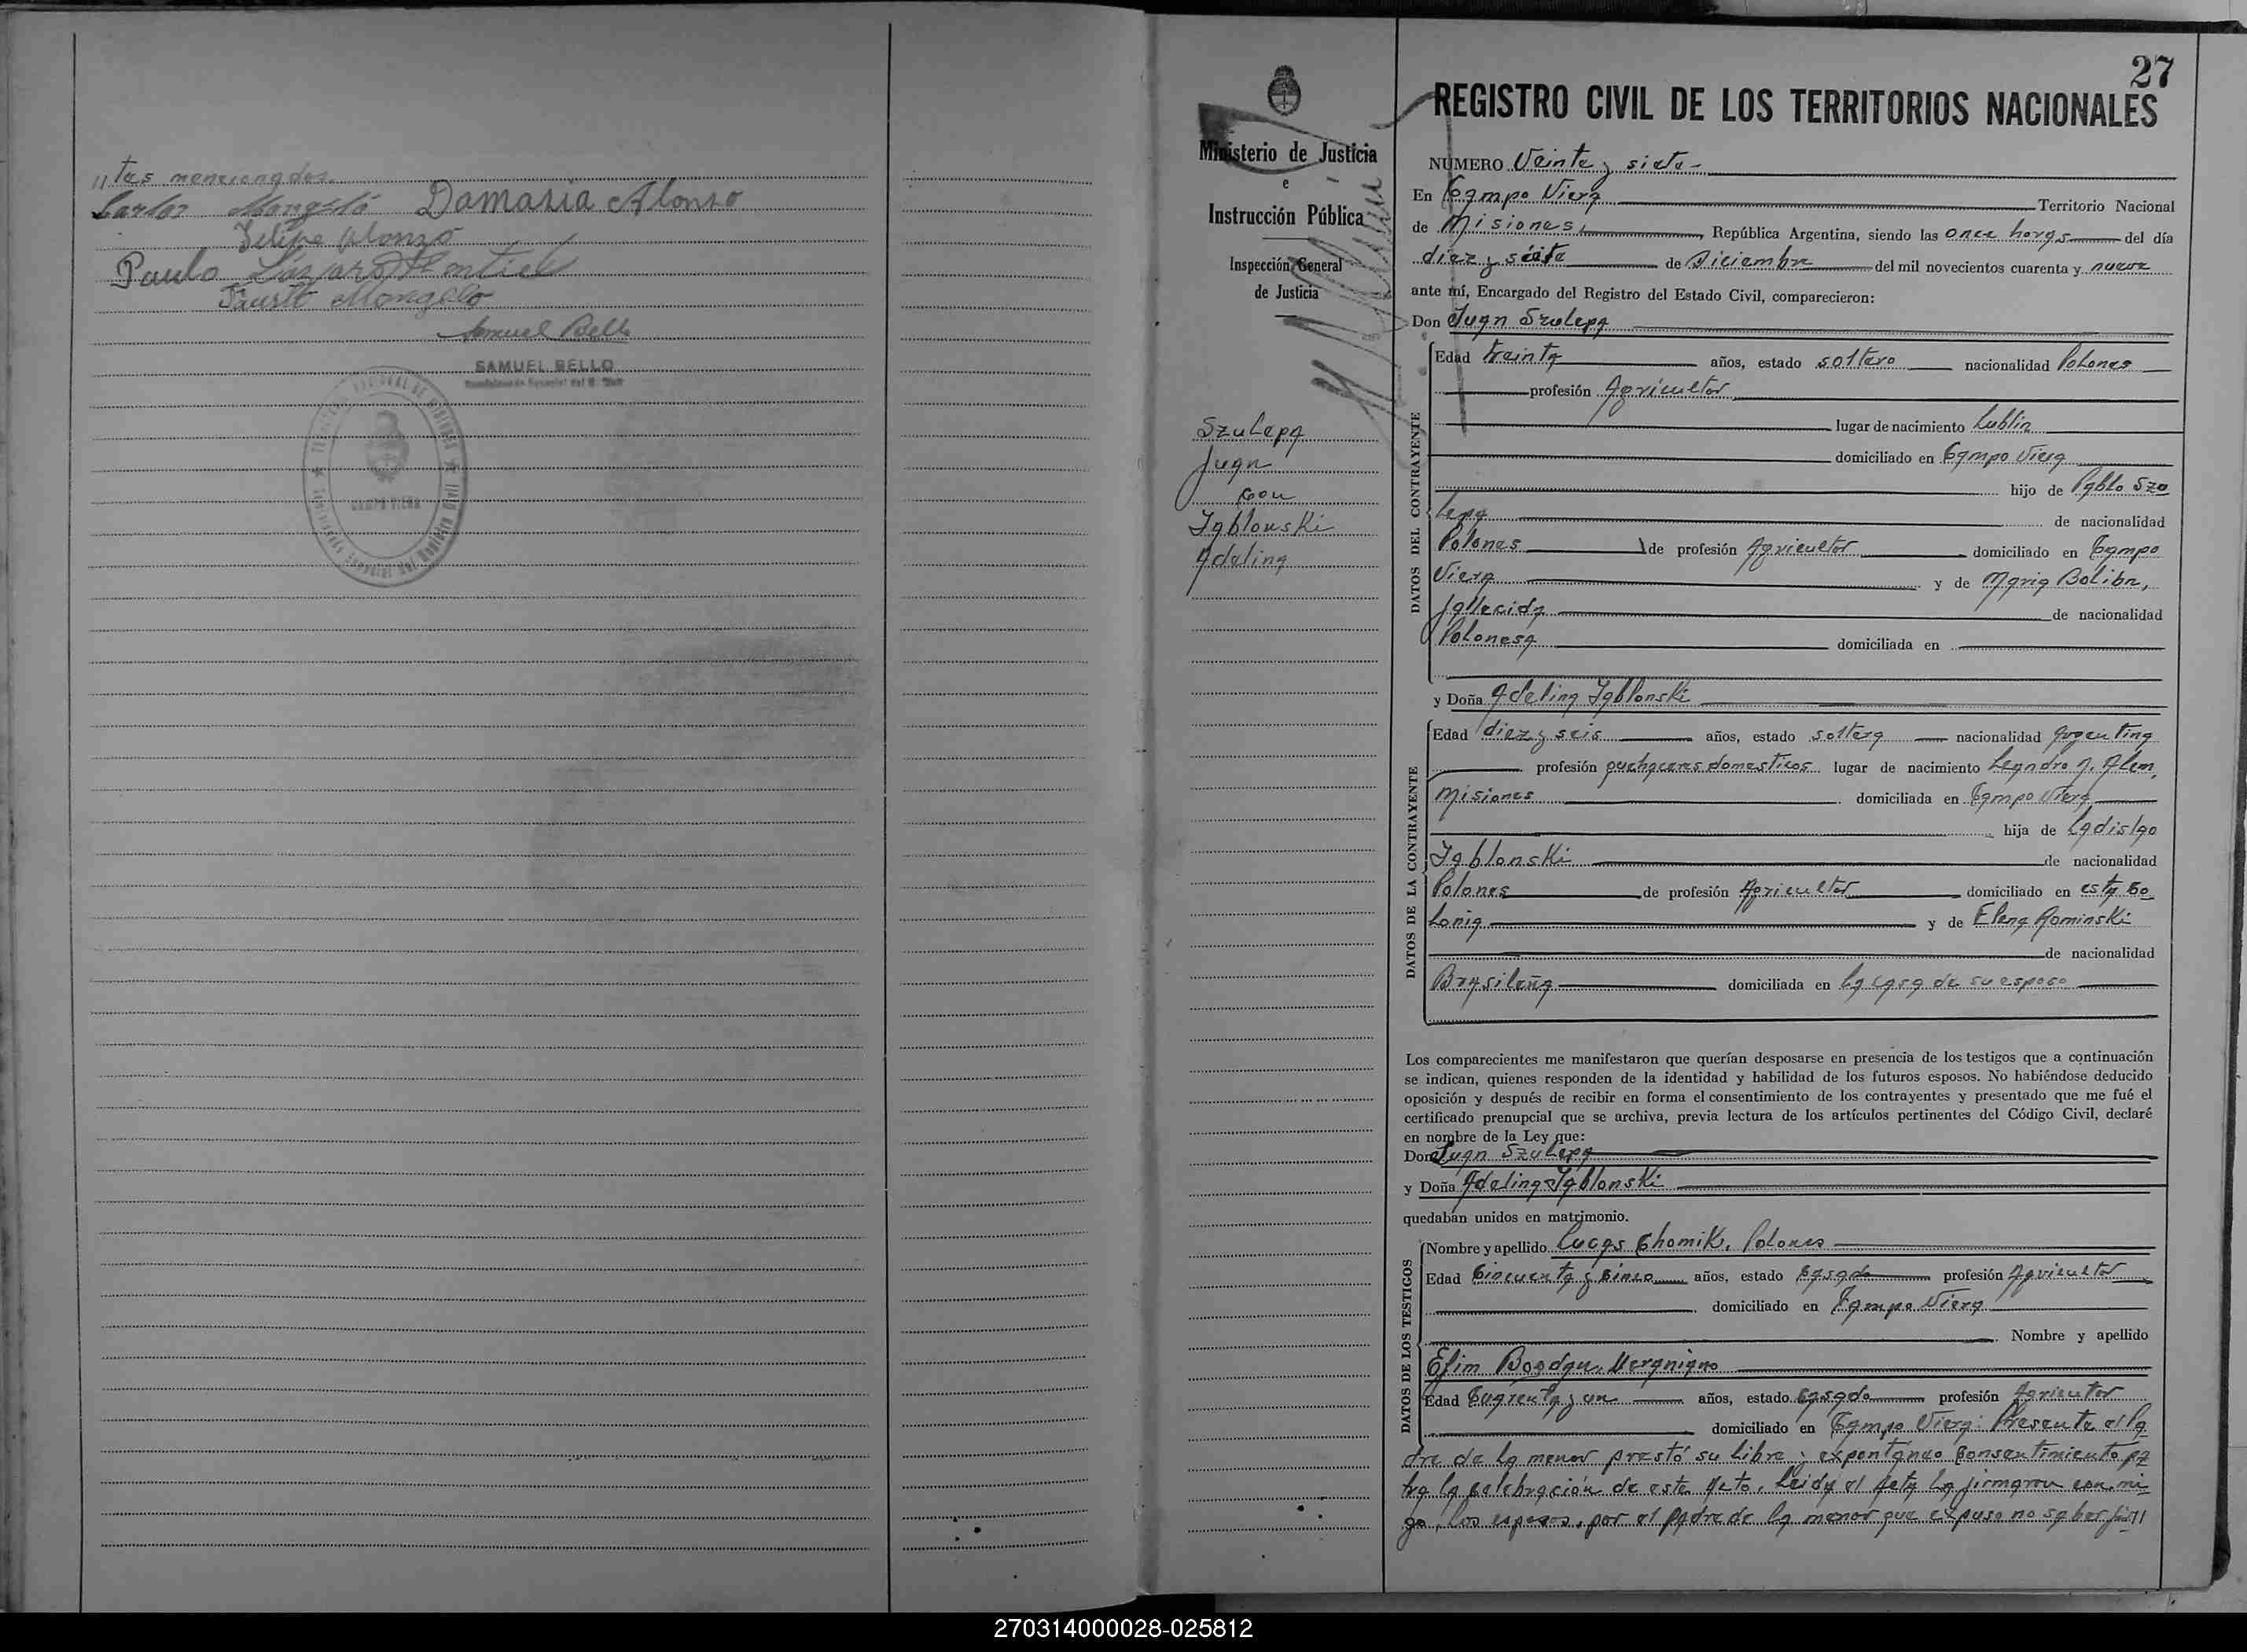 //tes mencionados.
Carlos Mongeló Damasia Alonso
Felipe Alonzo
Paulo Lázaro Montiel
Fausto Mongelo
Samuel Bello
SAMUEL BELLO
CAMPO VIERA
27
REGISTRO CIVIL DE LOS TERRITORIOS NACIONALES
Ministerio de Justicia
e
Instrucción Pública
Inspección General
de Justicia
Szulepa
Juan
con
Jablonski
Adelina
NÚMERO Veinte y siete-
En Campo Viera Territorio Nacional
de Misiones, República Argentina, siendo las once horas del día
diez y siete de Diciembre del mil novecientos cuarenta y nueve
ante mí, Encargado del Registro del Estado Civil, comparecieron:
Don Juan Szulepa
DATOS DEL CONTRAYENTE
Edad treinta años, estado soltero nacionalidad Polones
profesión Agricultor
lugar de nacimiento Lublin
domiciliado en Campo Viera
hijo de Pablo Szu
lepa de nacionalidad
Polones de profesión Agricultor domiciliado en Campo
Viera y de Maria Bolibn,
fallecida de nacionalidad
Polonesa domiciliada en
y Doña Adelina Jablonski
DATOS DE LA CONTRAYENTE
Edad diez y seis años, estado soltera nacionalidad Argentina
profesión quehaceres domesticos lugar de nacimiento Leandro N. Alem,
Misiones domiciliada en Campo Viera
hija de Ladislao
Jablonski de nacionalidad
Polones de profesión Agricultor domiciliado en esta Co
lonia y de Elena Rominski
de nacionalidad
Brasileña domiciliada en la casa de su esposo
Los comparecientes me manifestaron que querían desposarse en presencia de los testigos que a continuación
se indican, quienes responden de la identidad y habilidad de los futuros esposos. No habiéndose deducido
oposición y después de recibir en forma el consentimiento de los contrayentes y presentado que me fué el
certificado prenupcial que se archiva, previa lectura de los artículos pertinentes del Código Civil, declaré
en nombre de la Ley que:
Don Juan Szulepa
y Doña Adelina Jablonski
quedaban unidos en matrimonio.
DATOS DE LOS TESTIGOS
Nombre y apellido Lucas Chomik, Polones
Edad Cincuenta y cinco años, estado Casado profesión Agricultor
domiciliado en Campo Viera
Nombre y apellido
Efim Bogdan, Ucraniano
Edad Cuarenta y un años, estado Casado profesión Agricutor
domiciliado en Campo Viera: Presente el Pa
dre de la menor prestó su libre y expontáneo consentimiento pa
tra la celebración de este Acto. Leida el Acta la firmaron con mi
go, los esposos, por el padre de la menor que expuso no saber fir//
270314000028-025812